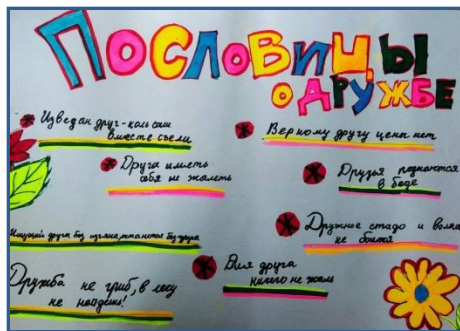 Пословицы
о дружбе
Изведан друг-
вместе съели
Друга иметь
себя не жалеть
без изъяна останется без друга
Дружба не гриб, в лесу
не найдёшь!
Верному другу цены нет
Друзья познаются
в беде
Дружное стадо и волка
не боится
Для друга
ничего не жаль